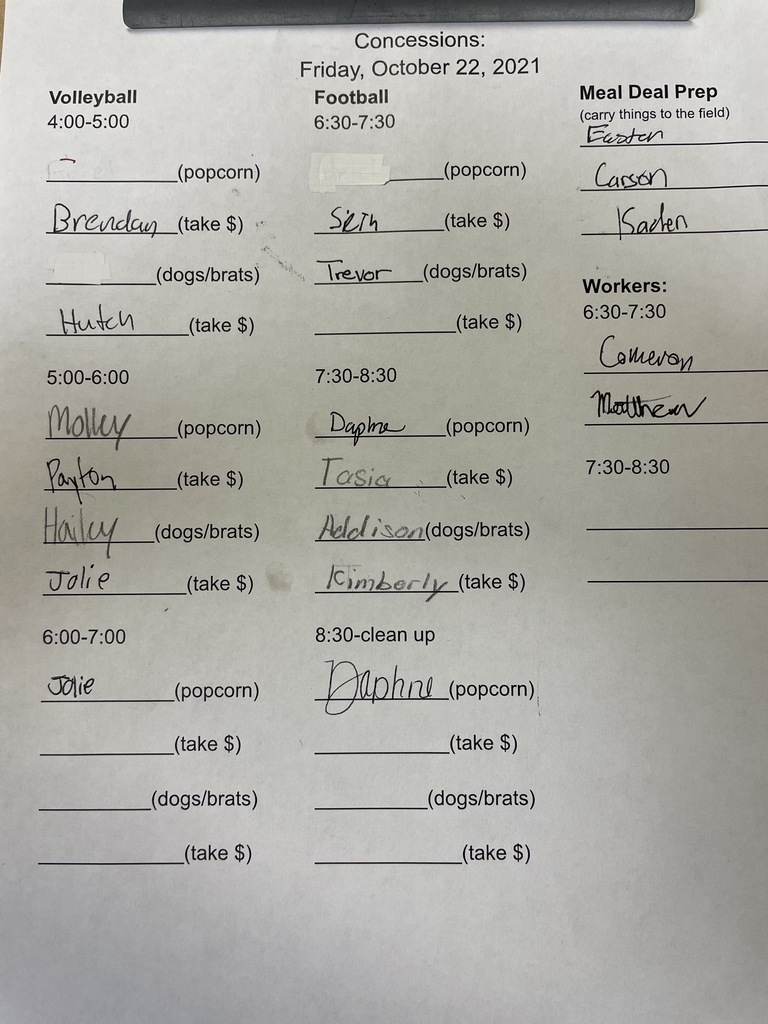 Concessions:
Friday, October 22, 2021
Volleyball
4:00-5:00
(popcorn)
Brendan (take $)
(dogs/brats)
Hutch (take $)
5:00-6:00
Molley (popcorn)
Payton (take $)
Hailey (dogs/brats)
Jolie (take $)
6:00-7:00
Jolie (popcorn)
(take $)
(dogs/brats)
(take $)
Football
6:30-7:30
(popcorn)
Seth (take $)
Trevor (dogs/brats)
(take $)
7:30-8:30
Daphne (popcorn)
Tasia (take $)
Addison (dogs/brats)
Kimberly (take $)
8:30-clean up
Daphne (popcorn)
(take $)
(dogs/brats)
(take $)
Meal Deal Prep
(carry things to the field)
Easton
Carson
Kaden
Workers:
6:30-7:30
Cameron
Matthew
7:30-8:30